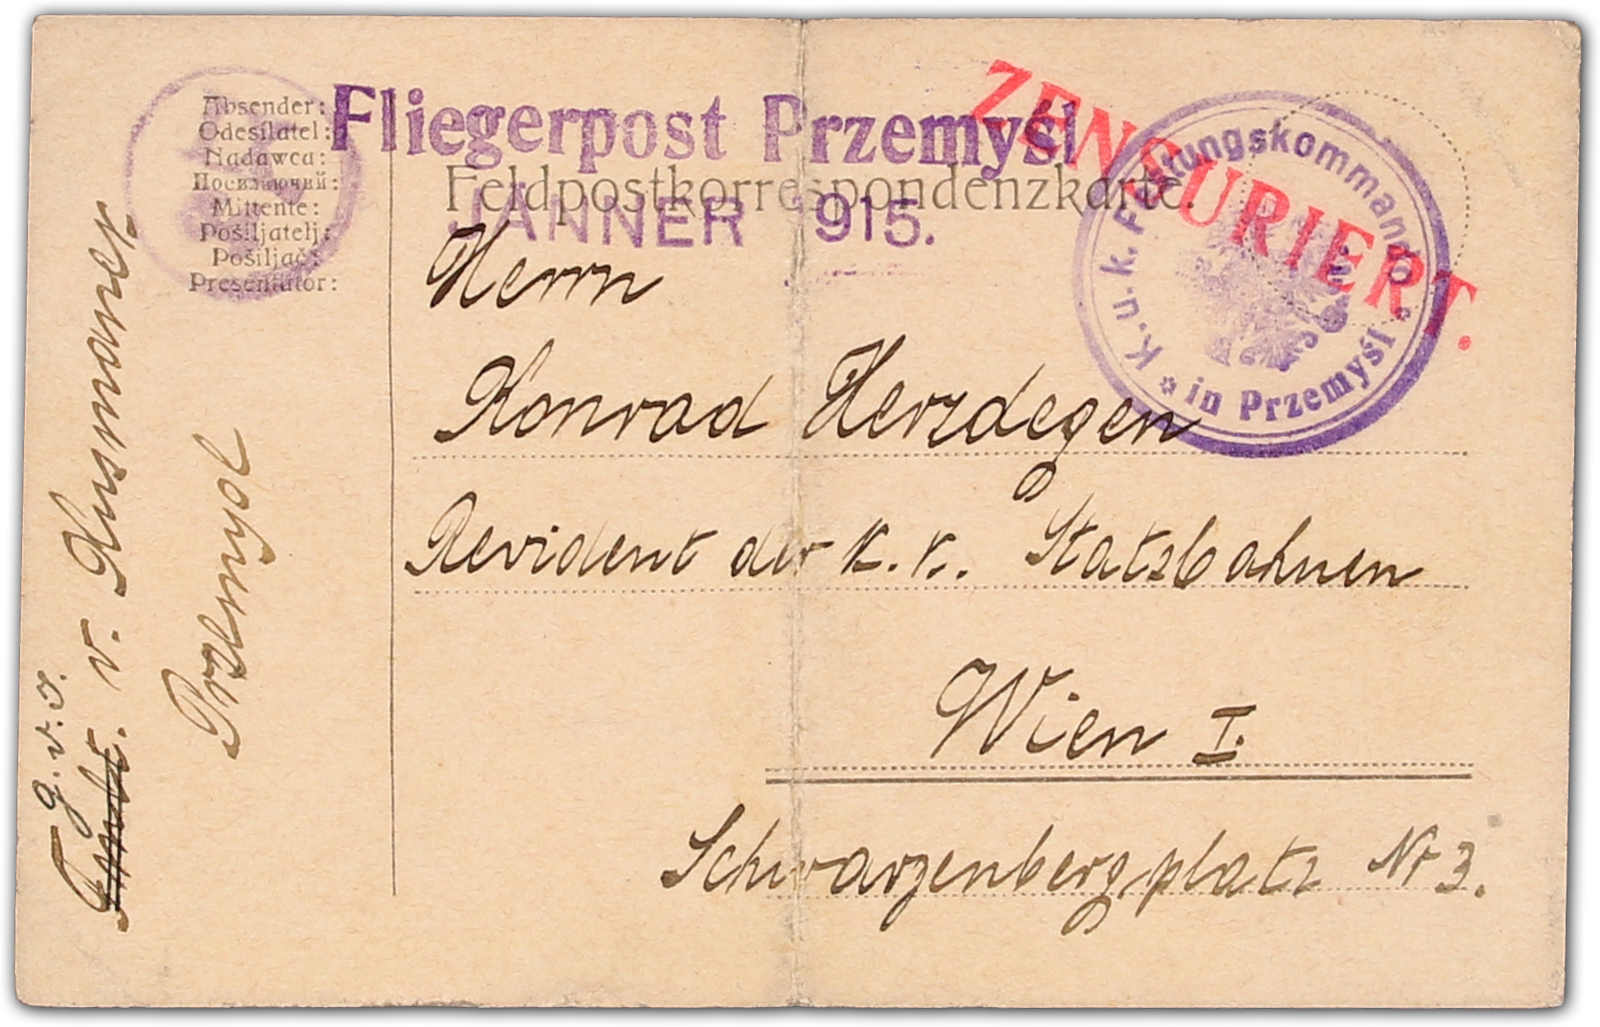 Absender:
Odesílatel:
Nadawca:
Посилаючий:
Mittente:
Pošiljatelj:
Pošiljač:
Presentator:
Fliegerpost Przemyśl
Feldpostkorrespondenzkarte.
JÄNNER 1915.
ZENSURIERT.
K. u. k. Festungskommando
in Przemyśl
Herrn
Konrad Herzdegen
Revident der k. k. Statsbahnen
Wien I.
Schwarzenbergplatz Nr 3.
g. v. J.
v. Kusmanek
Przemysl